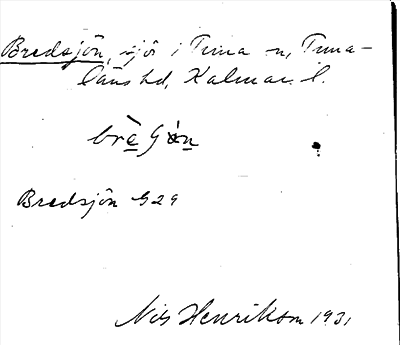 Bredsjön, sjö i Tuna sn, Tuna-
läns hd, Kalmar l.
Bredsjön G29
Nils Henrikson 1931